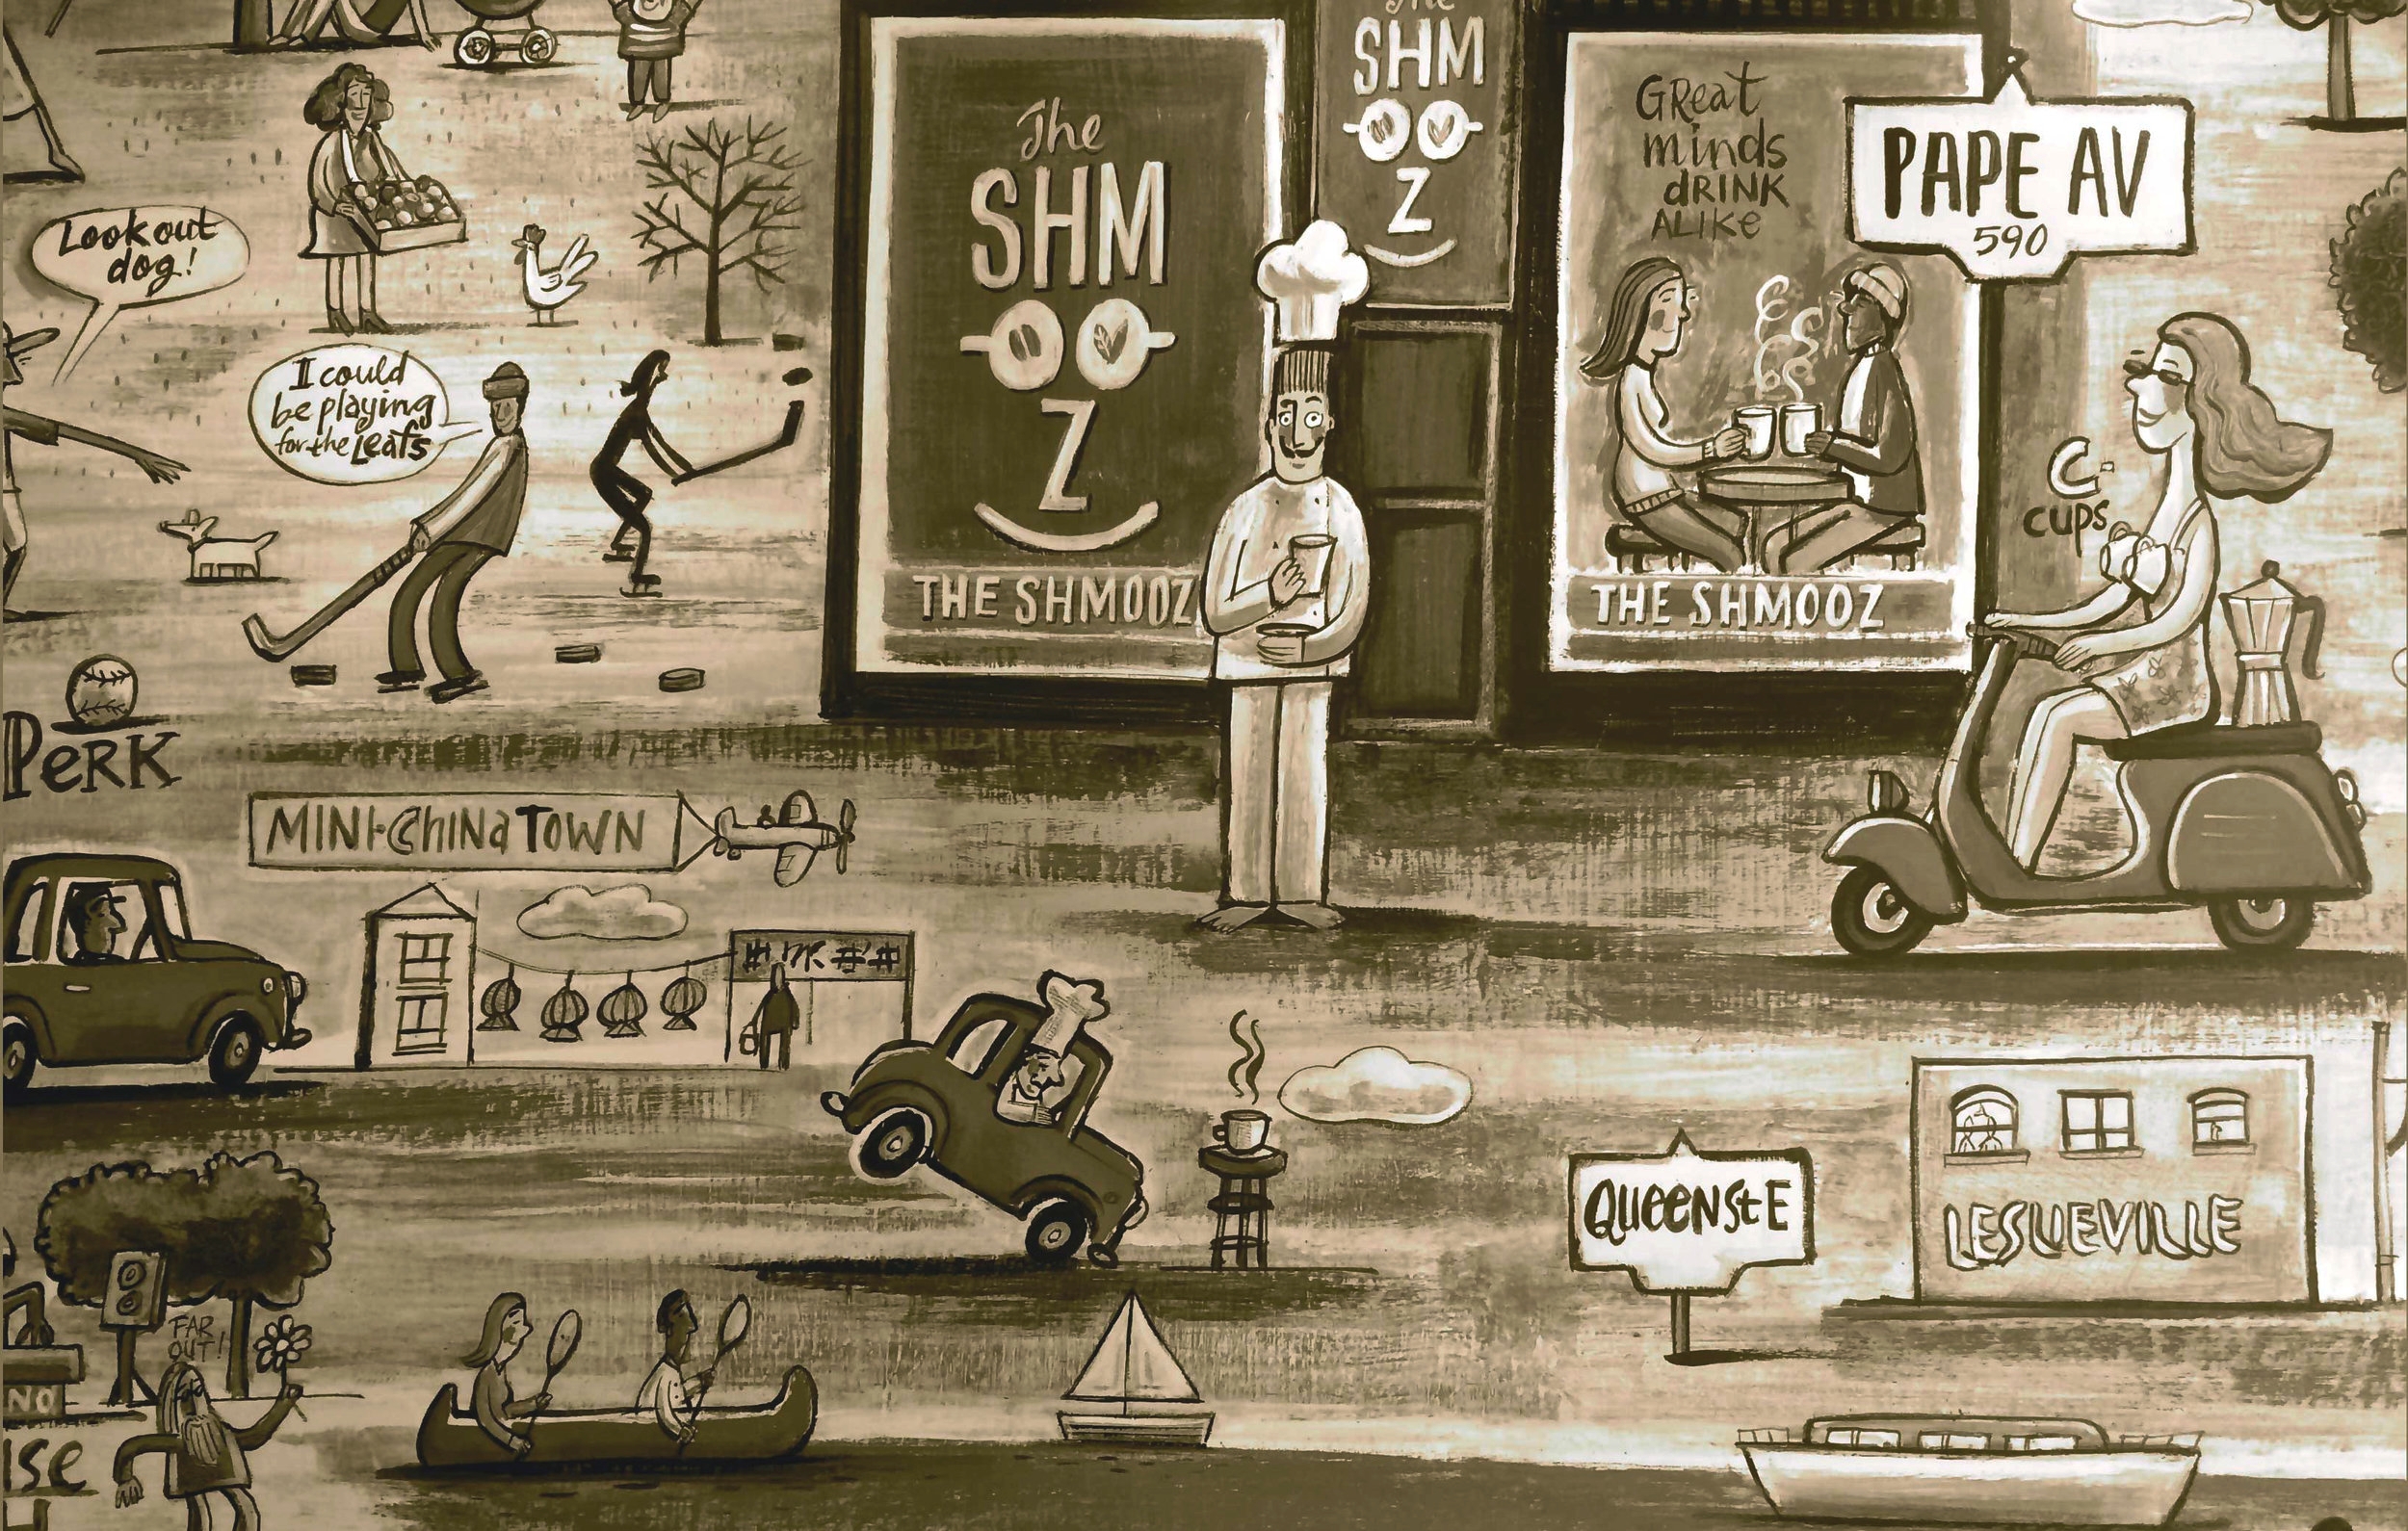 The
SHM
Z
THE SHMOOZ
The
SHM
Z
Great
minds
dRINK
ALIKe
THE SHMOOZ
PAPE AV
590
Look out
dog!
I could
be playing
for the Leafs
C
cups
PeRK
MINI-ChinaTOWN
QueenStE
LESLIEVILLE
FAR
OUT!
NO
ISe